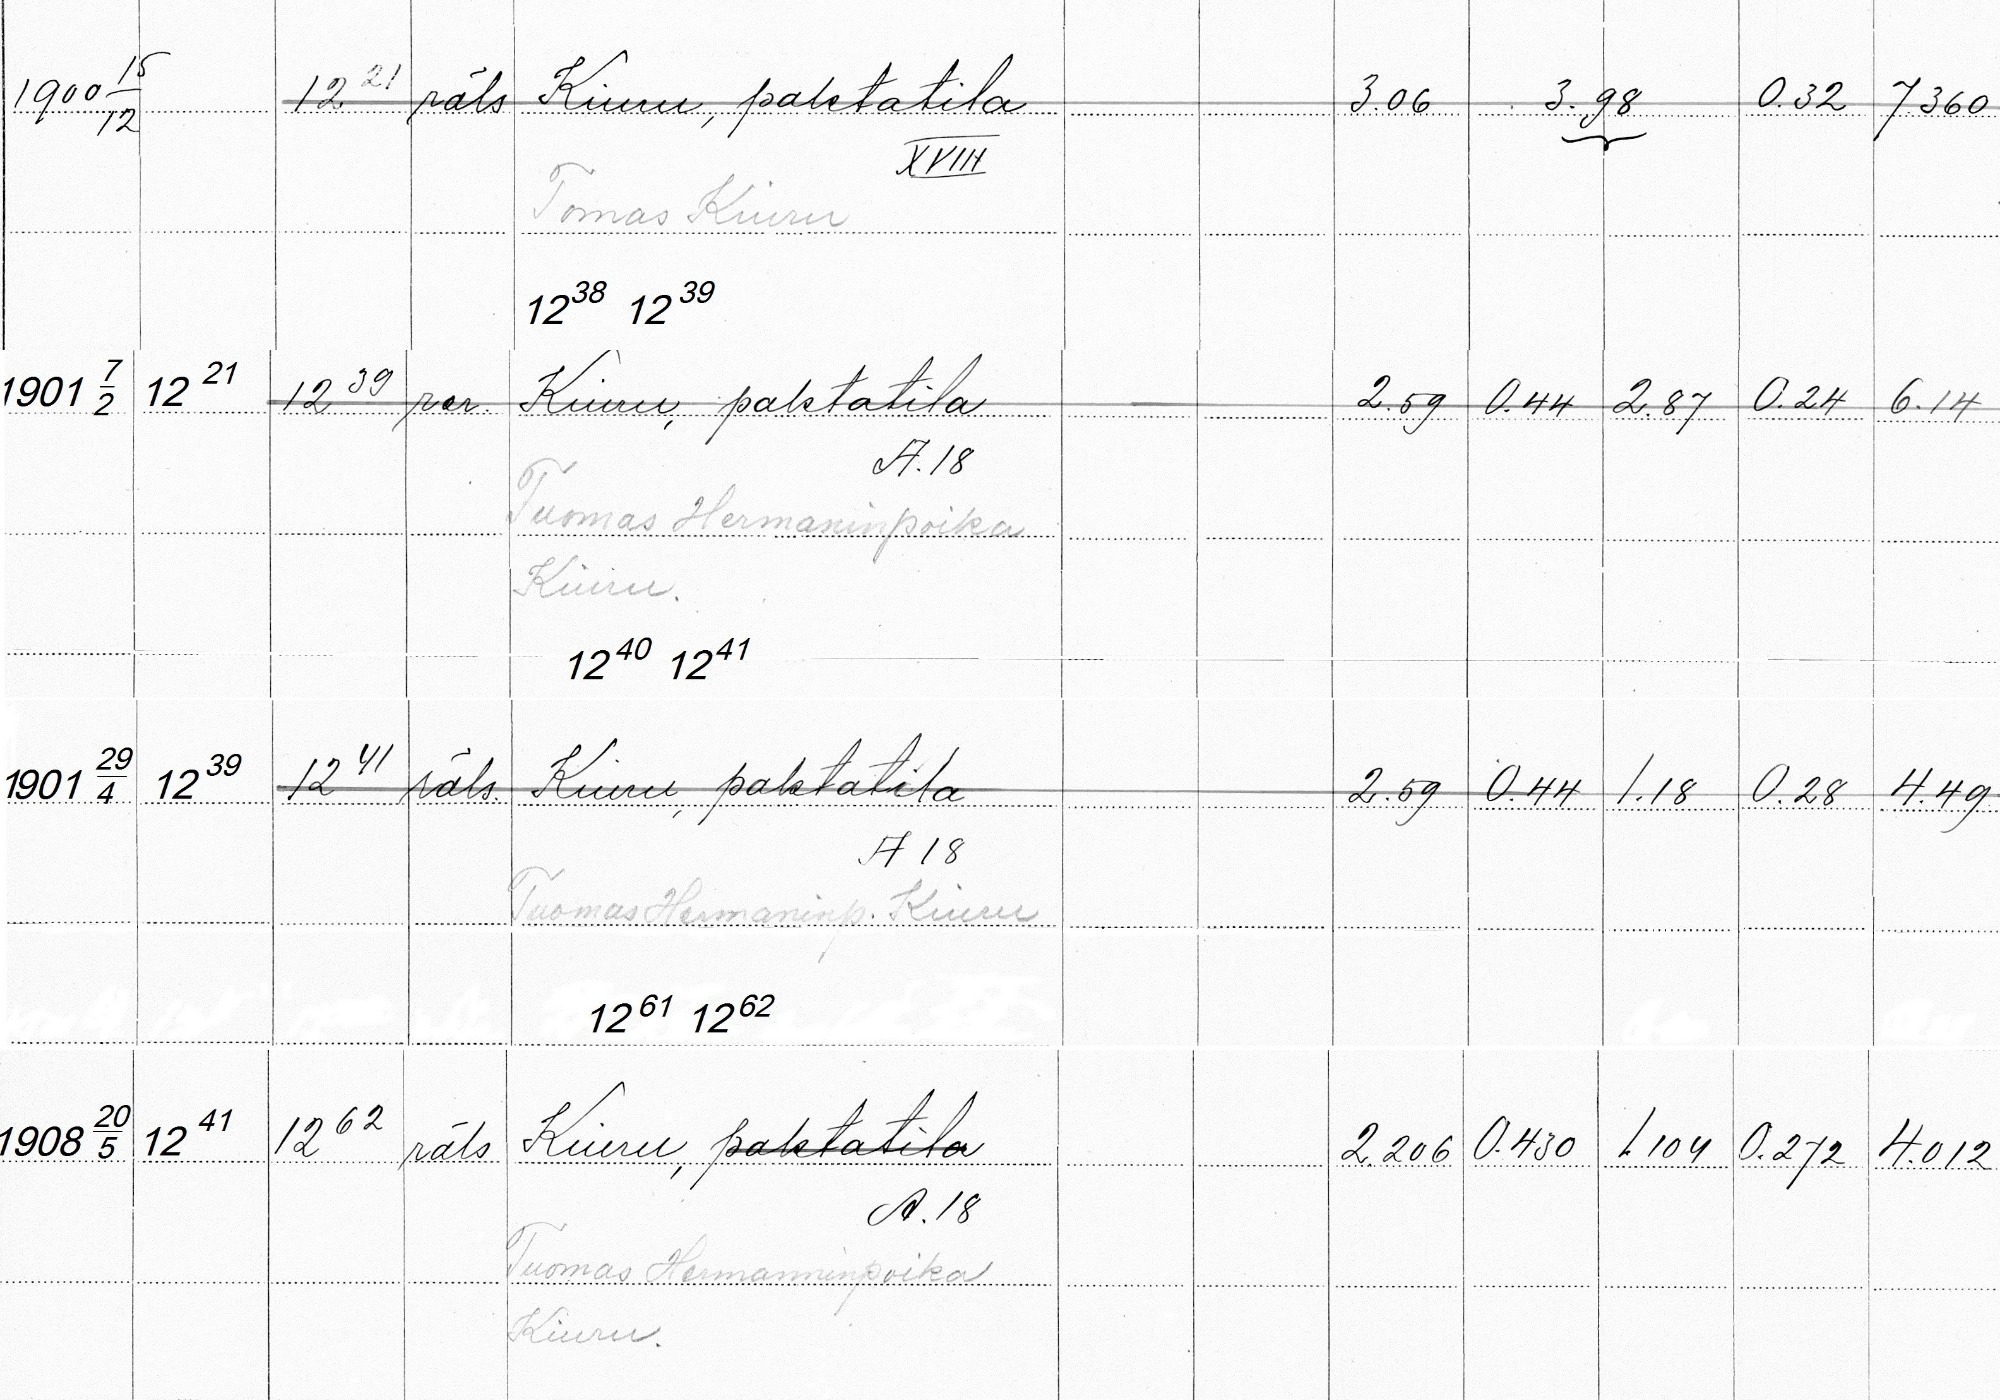 1900 15/12 12 21 räls Kiuru, paktatila 3.06 3.98 0.32 7360
XVIII
Tomas Kiuru
12 38 12 39
1901 7/2 12 21 12 39 per. Kiuru, paktatila — 2.59 0.44 2.87 0.24 6.14
A.18
Tuomas Hermaninpoika
Kiuru.
12 40 12 41
1901 29/4 12 39 12 41 räls. Kiuru, paktatila 2.59 0.44 1.18 0.28 4.49
A 18
Tuomas Hermaninp. Kiuru
12 61 12 62
1908 20/5 12 41 12 62 räls Kiuru, paktatila 2.206 0.430 1.104 0.272 4.012
A.18
Tuomas Hermanninpoika
Kiuru.